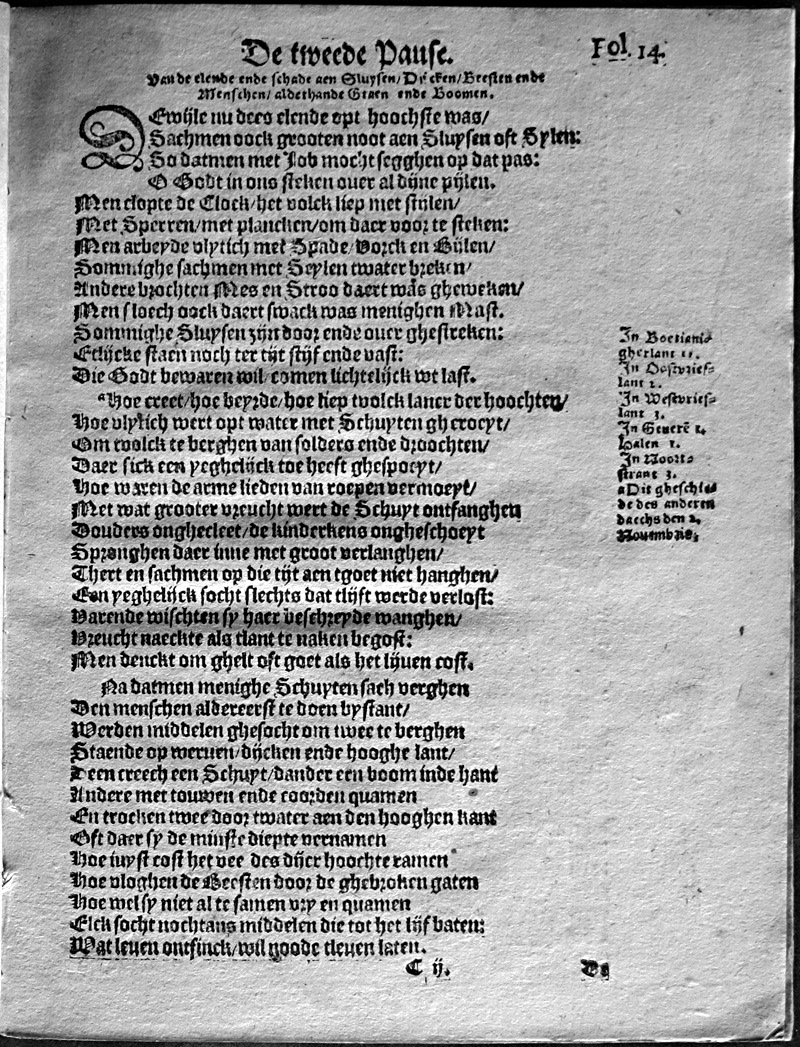 De tweede Pause.
Fol. 14.
Van de elende ende schade aen Sluysen/ Dijcken/ Beesten ende
Menschen/ alderhande Graen ende Boomen.
DEwijle nu dees elende opt hoochste was/
Sachmen oock grooten noot aen Sluysen oft Sylen:
So datmen met Job mocht segghen op dat pas:
O Godt in ons steken ouer al dijne pijlen.
Men clopte de Clock/ het volck liep met stijlen/
Met Sperren/ met plancken/ om daer voor te steken:
Men arbeyde vlytich met Spade/ Vorck en Bijlen/
Sommighe sachmen met Seylen twater breken/
Andere brochten Mes en Stroo daert was gheweken/
Men sloech oock daert swack was menighen Mast.
Sommighe Sluysen zijn door ende ouer ghestreken:
Etlijcke staen noch ter tijt stijf ende vast:
Die Godt bewaren wil/ comen lichtelijck wt last.
aHoe creet/ hoe beyrde/ hoe liep tvolck lancx der hoochten/
Hoe vlytich wert opt water met Schuyten gheroeyt/
Om tvolck te berghen van solders ende droochten/
Daer sick een yeghelijck toe heeft ghespoeyt/
Hoe waren de arme lieden van roepen vermoeyt/
Met wat grooter vreucht wert de Schuyt ontfanghen
Douders onghecleet/ de kinderkens ongheschoeyt
Spronghen daer inne met groot verlanghen/
Thert en sachmen op die tijt aen tgoet niet hanghen/
Een yeghelijck socht slechts dat tlijft werde verlost:
Varende wischten sy haer beschreyde wanghen/
Vreucht naeckte als tlant te naken begost:
Men denckt om ghelt oft goet als het lijuen cost.
Na datmen menighe Schuyten sach verghen
Den menschen aldereerst te doen bystant/
Werden middelen ghesocht om twee te berghen
Staende op weruen/ dijcken ende hooghe lant/
Deen creech een Schuyt/ dander een boom inde hant
Andere met touwen ende coorden quamen
En trocken twee door twater aen den hooghen kant
Oft daer sy de minste diepte vernamen
Hoe iuyst cost het vee des dijcx hoochte ramen
Hoe vloghen de Beesten door de ghebroken gaten
Hoe wel sy niet al te samen vry en quamen
Elck socht nochtans middelen die tot het lijf baten:
Wat leuen ontfinck/ wil goode tleuen laten.
C ij.
De
In Boetianis-
gherlant 11.
In Oostvries-
lant 2.
In Westvries-
lant 3.
In
halen 1.
In Noort-
strant 3.
aDit gheschie
de des anderen
daechs den 2.
Nouembris.